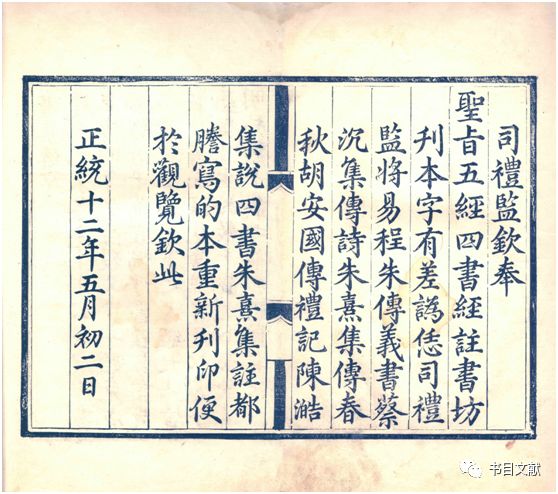 司禮監欽奉
聖旨五經四書經註書坊
刊本字有差譌恁司禮
監將易程朱傳義書蔡
沉集傳詩朱熹集傳春
秋胡安國傳禮記陳澔
集說四書朱熹集註都
謄寫的本重新刊印便
於觀覽欽此
正統十二年五月初二日
书目文献